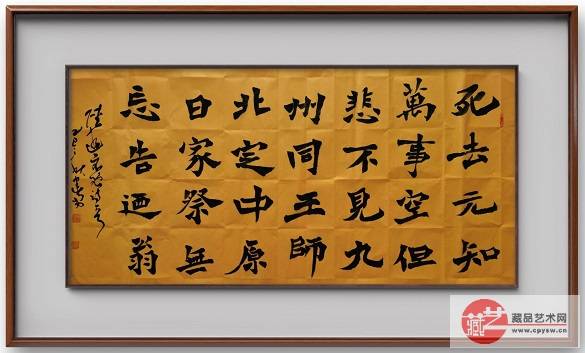 死去元知
萬事空但
悲不見九
州同王師
北定中原
日家祭無
忘告迺翁
藏品艺术网
www.cpysw.cn